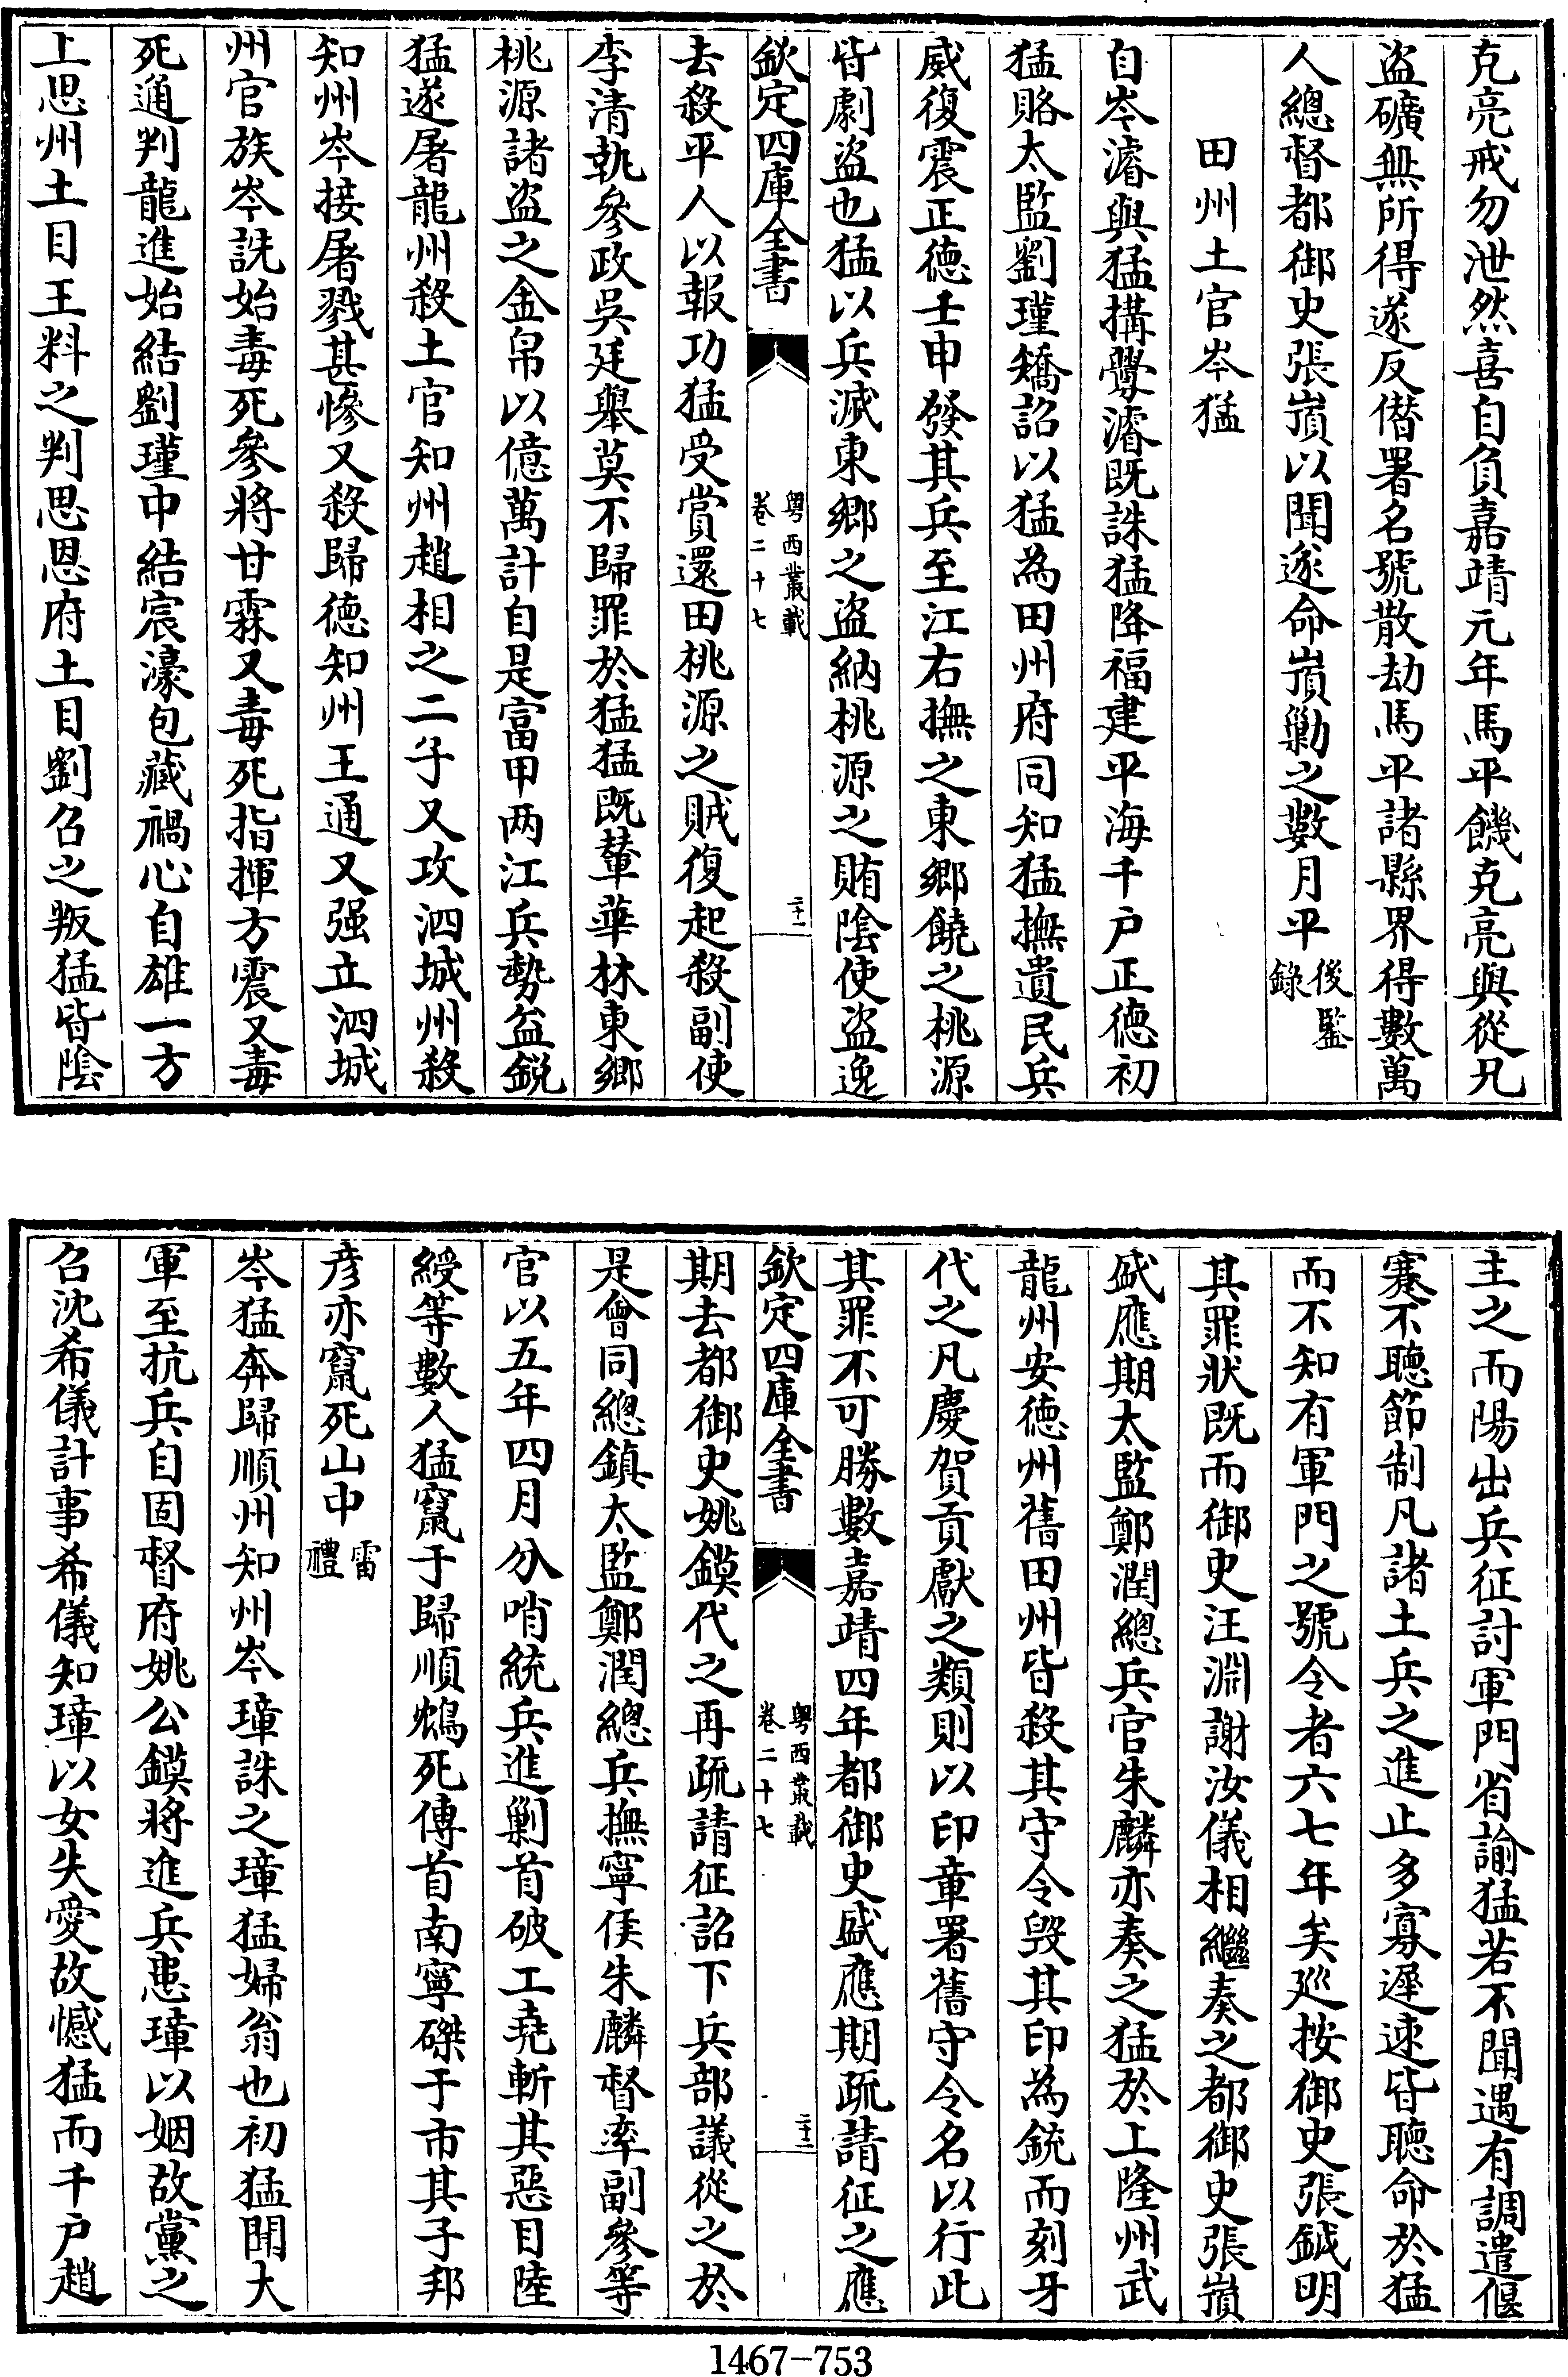 克亮戒勿泄然喜自負嘉靖元年馬平饑克亮與從凡
盗礦無所得遂反僣署名號散劫馬平諸縣界得數萬
人總督都御史張嵿以聞遂命嵿勦之數月平後監錄
田州土官岑猛
自岑濬與猛搆釁濬既誅猛降福建平海千户正德初
猛賂太監劉瑾矯詔以猛為田州府同知猛撫遺民兵
威復震正德壬申發其兵至江右撫之東鄉饒之桃源
皆劇盗也猛以兵滅東鄉之盗納桃源之賄陰使盗逸
欽定四庫全書
粤西叢載
卷二十七
二十一
去殺平人以報功猛受賞還田桃源之賊復起殺副使
李清執參政吳廷舉莫不歸罪於猛猛既輦華林東鄉
桃源諸盗之金帛以億萬計自是富甲两江兵勢益銳
猛遂屠龍州殺土官知州趙相之二子又攻泗城州殺
知州岑接屠戮甚慘又殺歸德知州王通又强立泗城
州官族岑詵始毒死參將甘霖又毒死指揮方震又毒
死通判龍進始結劉瑾中結宸濠包藏禍心自雄一方
上思州土目王料之判思恩府土目劉召之叛猛皆陰
主之而陽出兵征討軍門省諭猛若不聞遇有調遣偃
蹇不聽節制凡諸土兵之進止多寡遲速皆聽命於猛
而不知有軍門之號令者六七年矣廵按御史張鉞明
其罪狀既而御史汪淵謝汝儀相繼奏之都御史張嵿
盛應期太監鄭潤總兵官朱麟亦奏之猛於上隆州武
龍州安德州舊田州皆殺其守令毁其印為銃而刻牙
代之凡慶賀貢獻之類則以印章署舊守令名以行此
其罪不可勝數嘉靖四年都御史盛應期疏請征之應
欽定四庫全書
粤西叢載
卷二十七
二十二
期去都御史姚鏌代之再疏請征詔下兵部議從之於
是會同總鎮太監鄭潤總兵撫寧侯朱麟督率副參等
官以五年四月分哨統兵進剿首破工堯斬其惡目陸
綬等數人猛竄于歸順鴆死傳首南寧磔于市其子邦
彦亦竄死山中雷禮
岑猛奔歸順州知州岑璋誅之璋猛婦翁也初猛聞大
軍至抗兵自固督府姚公鏌將進兵患璋以姻故黨之
召沈希儀計事希儀知璋以女失愛故憾猛而千户趙
1467-753